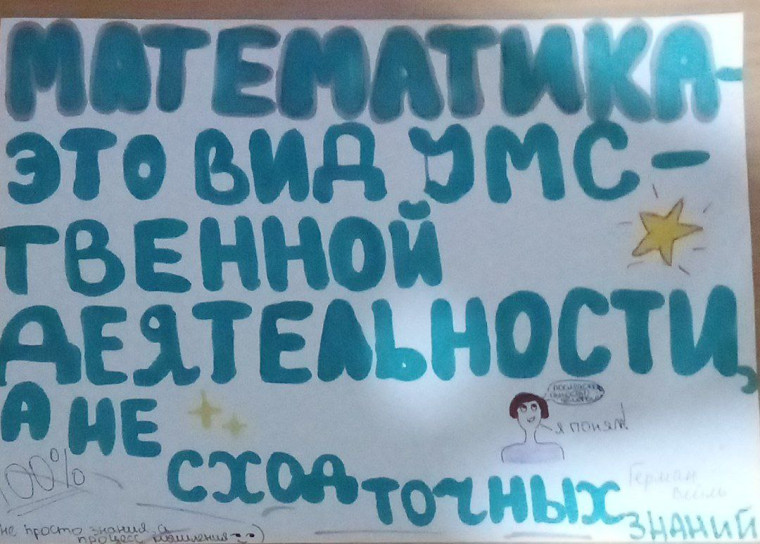 МАТЕМАТИКА-
ЭТО ВИД УМС-
ТВЕННОЙ
ДЕЯТЕЛЬНОСТИ,
А НЕ
СХОД ТОЧНЫХ
ЗНАНИЙ
я понял
100%
Герман
не просто знания а
процесс мышления